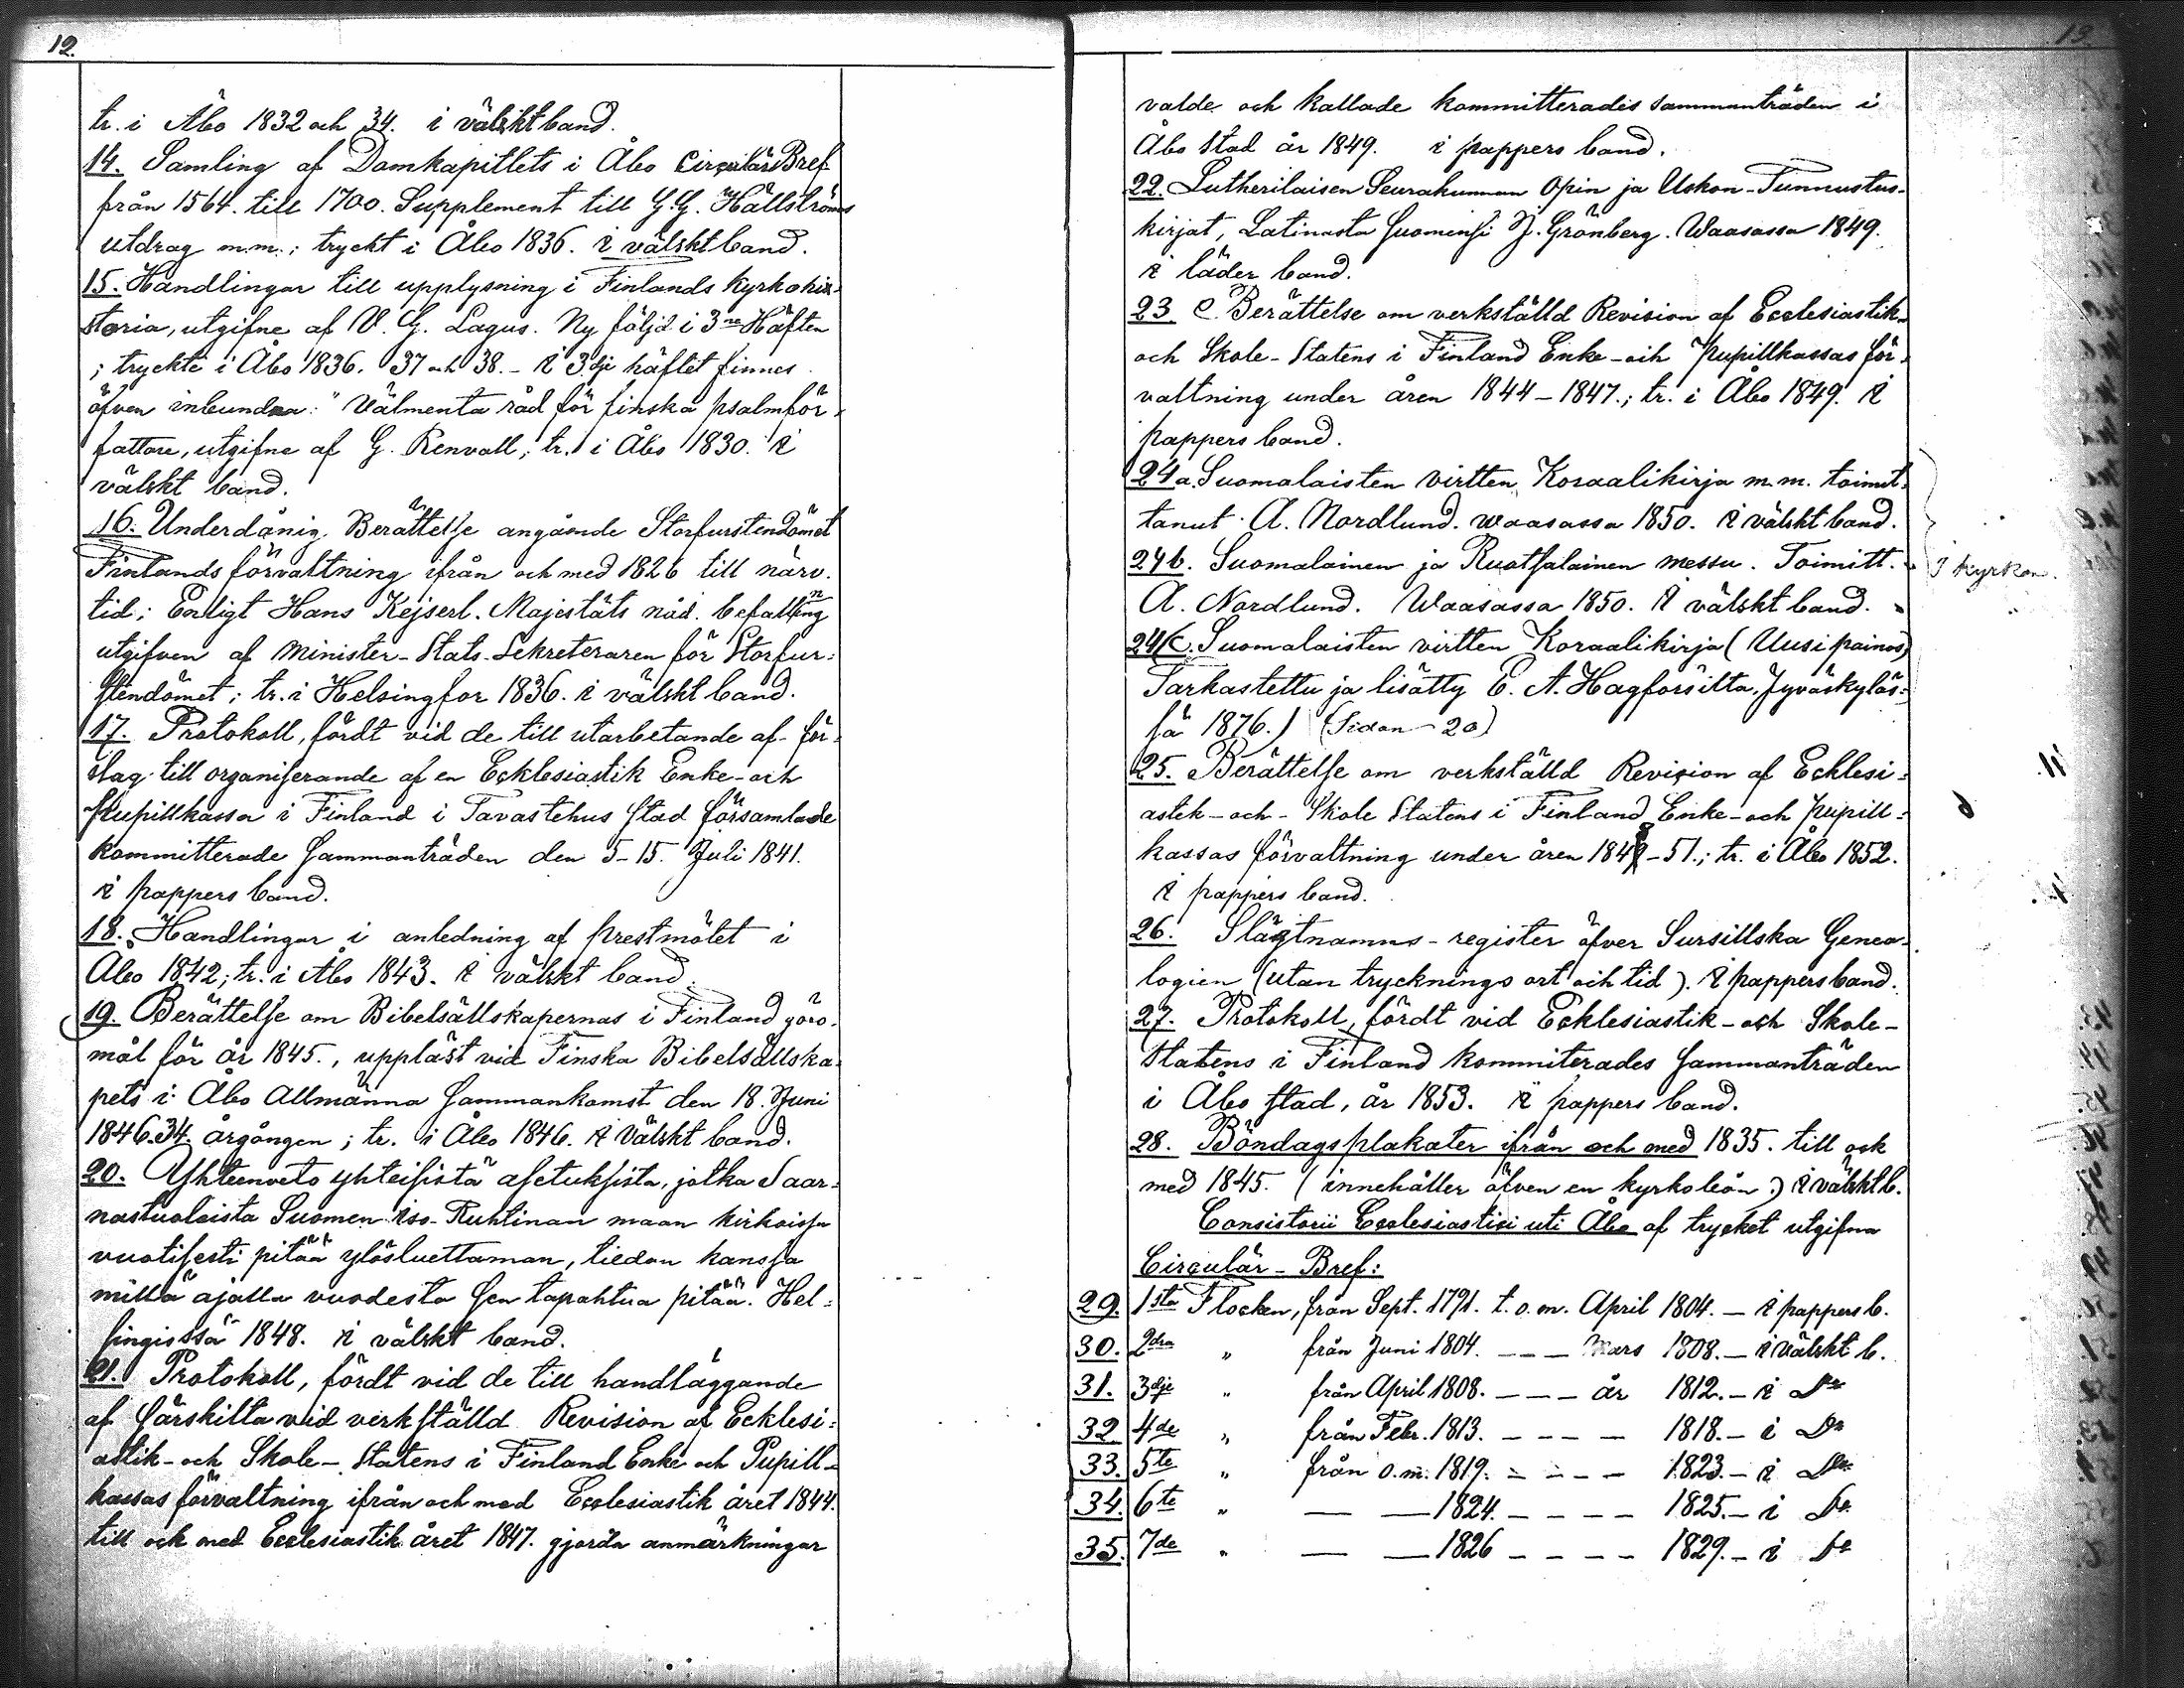 12.
tr. i Åbo 1832 och 34. i välskt band.
14. Samling af Domkapitlets i Åbo Circulär Bref
från 1564. till 1700. Supplement till G.G. Hällströms
utdrag m.m.; tryckt i Åbo 1836. i välskt band.
15. Handlingar till upplysning i Finlands Kyrkohis-
storia, utgifne af V. G. Lagus. Ny följd i 3ne Häften
; tryckte i Åbo 1836. 37 och 38. - i 3dje häftet finnes
öfven inbundna: "Välmenta råd för finska psalmför-
fattare, utgifne af G. Renvall; tr. i Åbo 1830. i
välskt band.
16. Underdånig Berättelse angående Storfurstendömet
Finlands förvaltning ifrån och med 1826 till närv.
tid; Enligt Hans Kejserl. Majestäts nåd. befallning
utgifven af Minister-Stats-Sekreteraren för Storfur-
stendömet; tr. i Helsingfor 1836. i välskt band.
17. Protokoll, fördt vid de till utarbetande af för-
slag till organiserande af en Ecklesiastik Enke- och
Pupillkassa i Finland i Tavastehus stad församlade
kommitterade sammanträden den 5-15. Juli 1841.
i pappers band.
18. Handlingar i anledning af prestmötet i
Åbo 1842; tr. i Åbo 1843. i välskt band.
19. Berättelse om Bibelsällskapernas i Finland göro-
mål för år 1845., uppläst vid Finska Bibelsällska-
pets i Åbo Allmänna sammankomst den 18. Juni
1846. 34. årgången; tr. i Åbo 1846. i välskt band.
20. Yhteenveto yhteisistä asetuksista, jotka Saar-
nastuoleista Suomen iso-Ruhtinan maan kirkoissa
vuotisesti pitää ylösluettaman, tiedon kanssa
millä ajalla vuodesta sen tapahtua pitää. Hel-
singissä 1848. i välskt band.
21. Protokoll, fördt vid de till handläggande
af särskilta vid verkställd Revision af Ecklesi-
astik- och Skole-Statens i Finland Enke och Pupill-
kassas förvaltning ifrån och med Ecclesiastik året 1844.
till och med Ecclesiastik året 1847. gjorda anmärkningar
13.
valde och kallade kommitterades sammanträden i
Åbo stad år 1849. i pappers band.
22. Lutherilaisen Seurakunnan Opin ja Uskon-Tunnustus-
kirjat, Latinasta Suomensi J. Grönberg. Waasassa 1849.
i läder band.
23 Berättelse om verkställd Revision af Ecclesiastik-
och Skole-Statens i Finland Enke- och pupillkassas för-
valtning under åren 1844-1847.; tr. i Åbo 1849. i
pappers band.
24 a. Suomalaisten virtten Koraalikirja m.m. toimit-
tanut A. Nordlund. Waasassa 1850. i välskt band.
24 b. Suomalainen ja Ruotsalainen messu. Toimitt.
I kyrkan.
A. Nordlund. Waasassa 1850. i välskt band.
24/c. Suomalaisten virtten Koraalikirja (Uusi painos)
Tarkastettu ja lisätty E. A. Hagforsilta, Jyväskyläs-
sä 1876.) (Sidan 20)
25. Berättelse om verkställd Revision af Ecklesi-
astik-och-Skole Statens i Finland Enke- och pupill-
kassas förvaltning under åren 1848-51.; tr. i Åbo 1852.
i pappers band.
26. Slägtnamns-register öfver Sursillska Genea-
logien (utan trycknings ort och tid). i pappers band.
27. Protokoll, fördt vid Ecklesiastik- och Skole-
Statens i Finland kommiterades sammanträden
i Åbo stad, år 1853. i pappers band.
28. Böndagsplakater ifrån och med 1835. till och
med 1845. (innehåller äfven en kyrkobön.) i välskt b.
Consistorii Ecclesiastici uti Åbo af trycket utgifna
Circulär-Bref:
29. 1sta Flocken, från Sept. 1791. t.o.m. April 1804. - i pappers b.
30. 2dra " från Juni 1804. - - - Mars 1808. - i välskt b.
31. 3dje " från April 1808. - - - år 1812. - i Do
32 4de " från Febr. 1813. - - - - 1818. - i Do
33. 5te " från o.m. 1819. - - - - 1823. - i Do
34. 6te " - - 1824. - - - - 1825. - i Do
35. 7de " - - 1826 - - - - 1829. - i Do